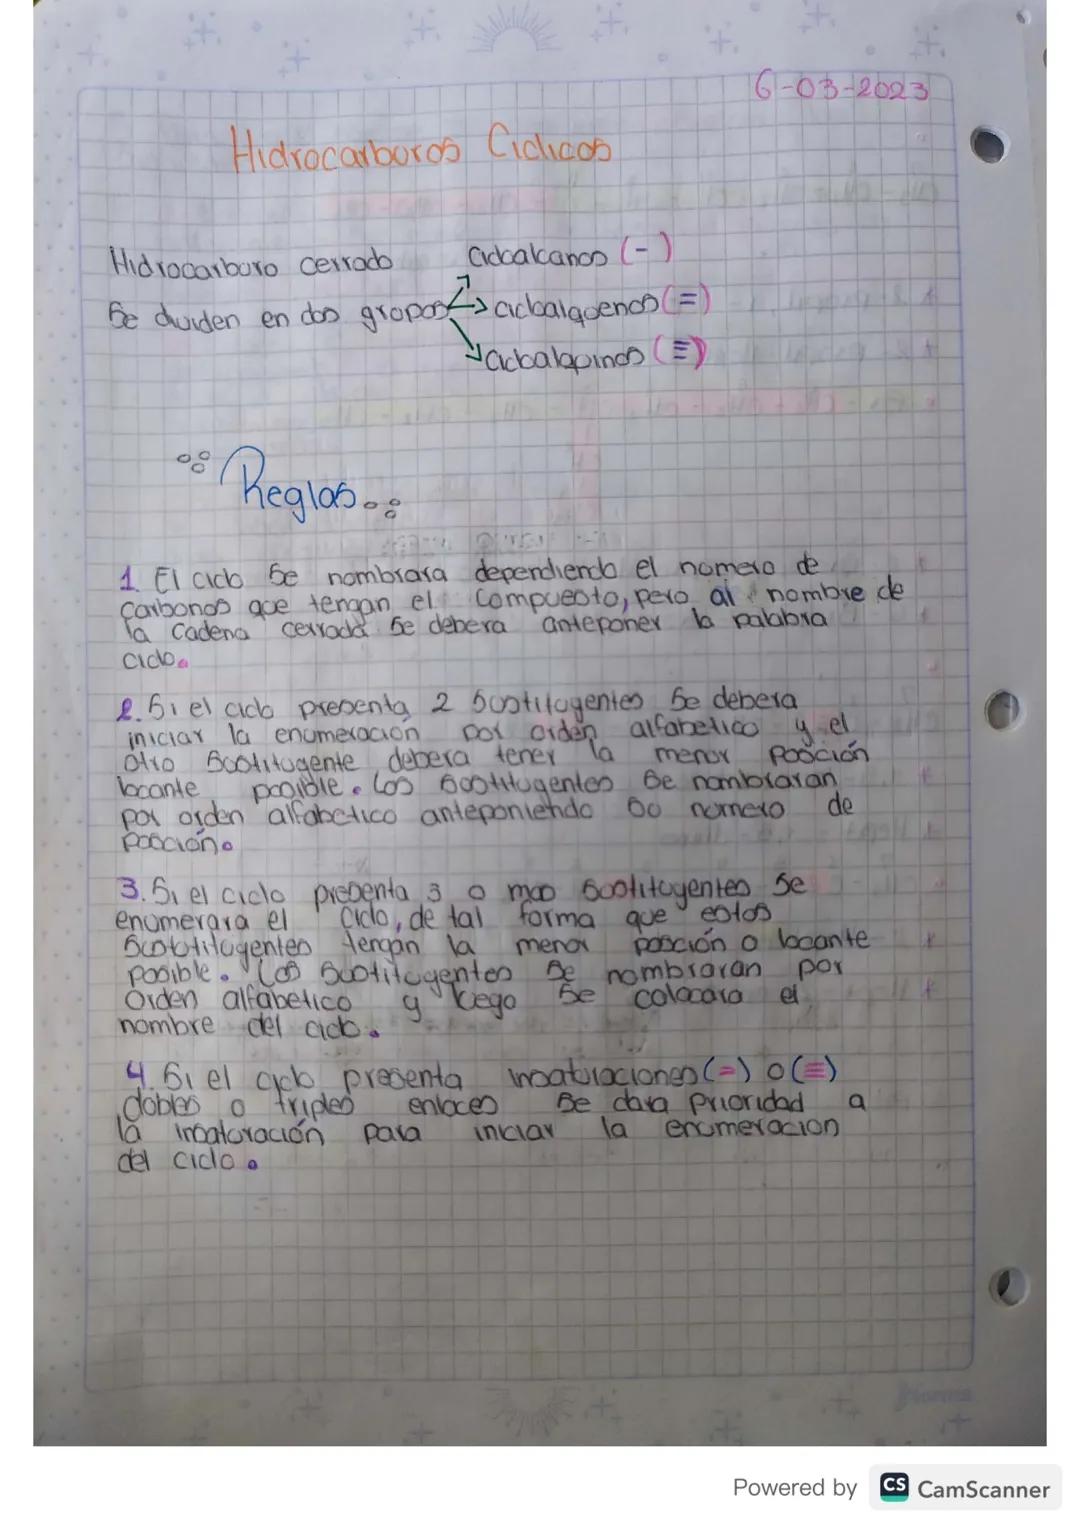 6-03-2023
Hidrocarburos Ciclicos
Hidrocarburo cerrado
Se dividen en dos grupos
Cicloalcanos (-)
cicloalquenos (=)
cicloalquinos (≡)
Reglas
1. El ciclo se nombrara dependiendo el numero de
carbonos que tengan el compuesto, pero al nombre de
la cadena cerrada se debera anteponer la palabra
ciclo.
2. Si el ciclo presenta 2 sustituyentes se debera
iniciar la enumeracion por orden alfabetico y el
otro sustituyente debera tener la menor posición
locante posible. Los sustituyentes se nombraran
por orden alfabetico anteponiendo su numero de
posición.
3. Si el ciclo presenta 3 o mas sustituyentes se
enumerara el ciclo, de tal forma que estos
sustituyentes tengan la menor posición o locante
posible. Los sustituyentes se nombraran por
orden alfabetico y luego se colocara el
nombre del ciclo.
4. Si el ciclo presenta insaturaciones (=) o (≡)
dobles o triples enlaces se dara prioridad a
la insaturación para iniciar la enumeracion
del ciclo.
Norma
Powered by CS CamScanner